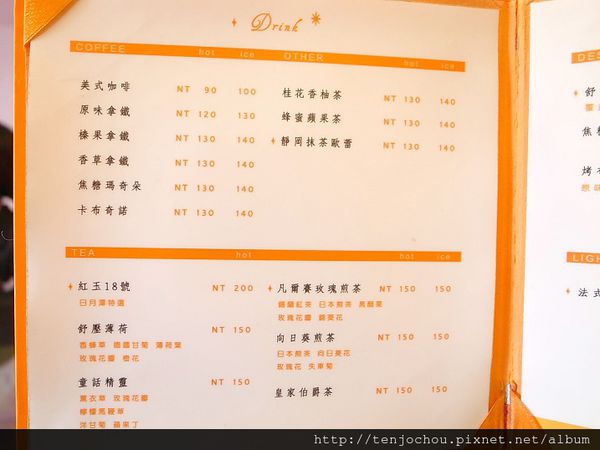 Drink
COFFEE hot ice
美式咖啡 NT 90 100
原味拿鐵 NT 120 130
榛果拿鐵 NT 130 140
香草拿鐵 NT 130 140
焦糖瑪奇朵 NT 130 140
卡布奇諾 NT 130 140
OTHER hot ice
桂花香柚茶 NT 130 140
蜂蜜蘋果茶 NT 130 140
靜岡抹茶歐蕾 NT 130 140
TEA hot
紅玉18號 NT 200
日月潭特選
舒壓薄荷 NT 150
香蜂草 德國甘菊 薄荷葉
玫瑰花瓣 橙花
童話精靈 NT 150
薰衣草 玫瑰花瓣
檸檬馬鞭草
洋甘菊 蘋果丁
hot ice
凡爾賽玫瑰煎茶 NT 150 150
錫蘭紅茶 日本煎茶 馬鞭草
玫瑰花瓣 錦葵花
向日葵煎茶 NT 150 150
日本煎茶 向日葵花
玫瑰花 矢車菊
皇家伯爵茶 NT 150 150
DES
舒
焦
烤
原味
LIGH
法式
http://tenjochou.pixnet.net/album